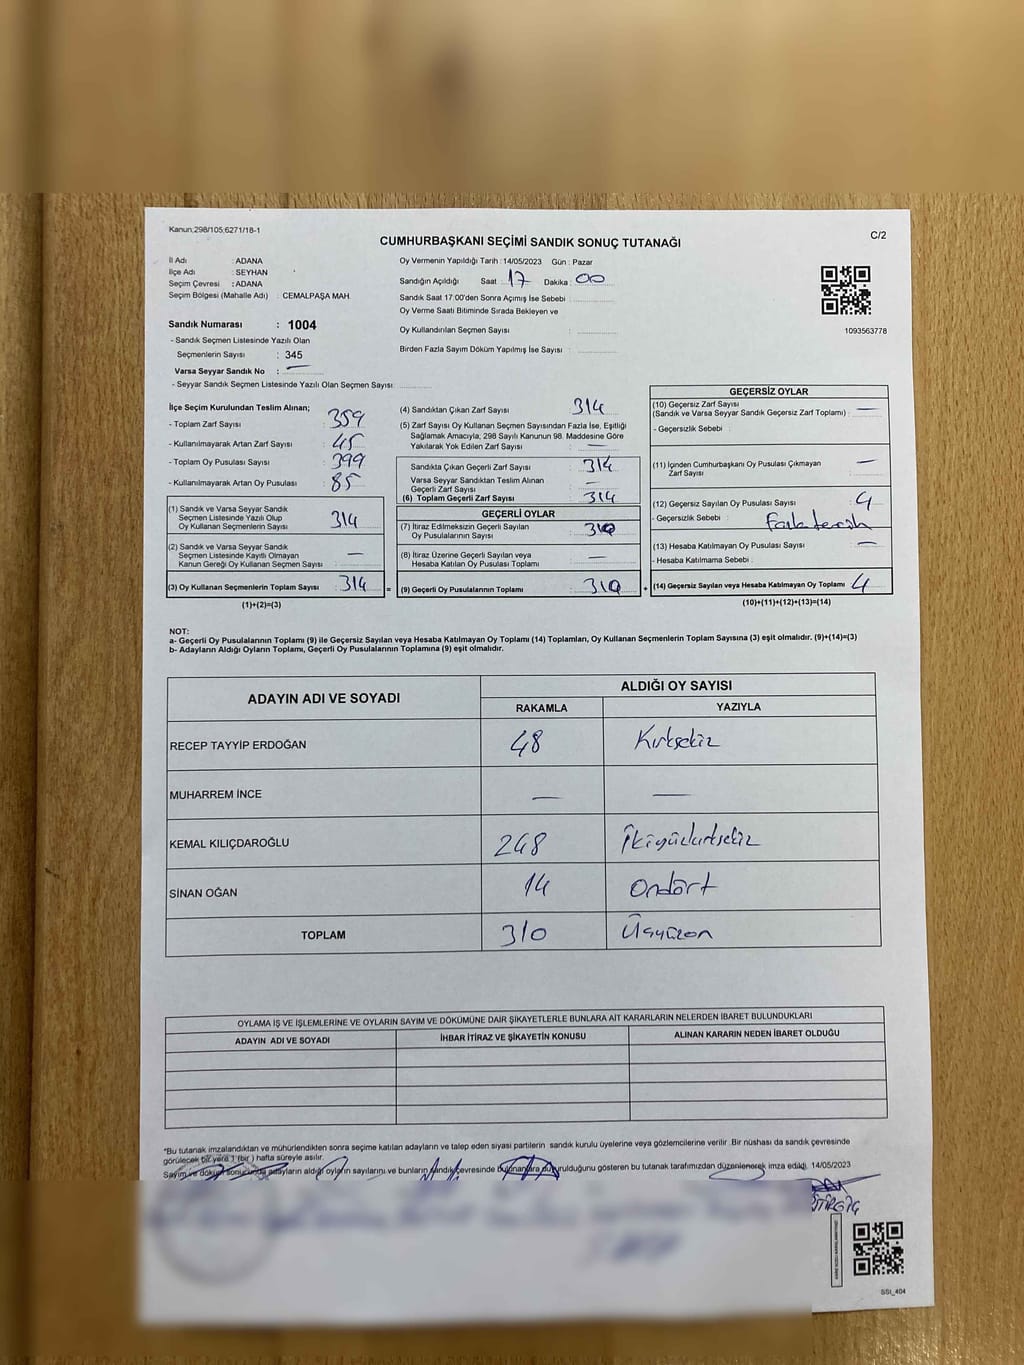 Kanun;298/105;6271/18-1
C/2
CUMHURBAŞKANI SEÇİMİ SANDIK SONUÇ TUTANAĞI
İl Adı : ADANA
İlçe Adı : SEYHAN
Seçim Çevresi : ADANA
Seçim Bölgesi (Mahalle Adı) : CEMALPAŞA MAH.
Oy Vermenin Yapıldığı Tarih : 14/05/2023 Gün : Pazar
Sandığın Açıldığı Saat : 17 Dakika : 00
Sandık Saat 17:00'den Sonra Açımış İse Sebebi :
Oy Verme Saati Bitiminde Sırada Bekleyen ve
Oy Kullandırılan Seçmen Sayısı :
Birden Fazla Sayım Döküm Yapılmış İse Sayısı :
1093563778
Sandık Numarası : 1004
- Sandık Seçmen Listesinde Yazılı Olan
Seçmenlerin Sayısı : 345
Varsa Seyyar Sandık No : —
- Seyyar Sandık Seçmen Listesinde Yazılı Olan Seçmen Sayısı:
İlçe Seçim Kurulundan Teslim Alınan;
- Toplam Zarf Sayısı : 359
- Kullanılmayarak Artan Zarf Sayısı : 45
- Toplam Oy Pusulası Sayısı : 399
- Kullanılmayarak Artan Oy Pusulası : 85
(1) Sandık ve Varsa Seyyar Sandık
Seçmen Listesinde Yazılı Olup
Oy Kullanan Seçmenlerin Sayısı : 314
(2) Sandık ve Varsa Seyyar Sandık
Seçmen Listesinde Kayıtlı Olmayan
Kanun Gereği Oy Kullanan Seçmen Sayısı : —
(3) Oy Kullanan Seçmenlerin Toplam Sayısı : 314 =
(1)+(2)=(3)
(4) Sandıktan Çıkan Zarf Sayısı : 314
(5) Zarf Sayısı Oy Kullanan Seçmen Sayısından Fazla İse, Eşitliği
Sağlamak Amacıyla, 298 Sayılı Kanunun 98. Maddesine Göre
Yakılarak Yok Edilen Zarf Sayısı : —
Sandıkta Çıkan Geçerli Zarf Sayısı : 314
Varsa Seyyar Sandıktan Teslim Alınan
Geçerli Zarf Sayısı : —
(6) Toplam Geçerli Zarf Sayısı : 314
GEÇERLİ OYLAR
(7) İtiraz Edilmeksizin Geçerli Sayılan
Oy Pusulalarının Sayısı : 310
(8) İtiraz Üzerine Geçerli Sayılan veya
Hesaba Katılan Oy Pusulası Toplamı : —
(9) Geçerli Oy Pusulalarının Toplamı : 310 +
GEÇERSİZ OYLAR
(10) Geçersiz Zarf Sayısı
(Sandık ve Varsa Seyyar Sandık Geçersiz Zarf Toplamı) : —
- Geçersizlik Sebebi :
(11) İçinden Cumhurbaşkanı Oy Pusulası Çıkmayan
Zarf Sayısı : —
(12) Geçersiz Sayılan Oy Pusulası Sayısı : 4
- Geçersizlik Sebebi : Fazla tercih
(13) Hesaba Katılmayan Oy Pusulası Sayısı : —
- Hesaba Katılmama Sebebi :
(14) Geçersiz Sayılan veya Hesaba Katılmayan Oy Toplamı : 4
(10)+(11)+(12)+(13)=(14)
NOT:
a- Geçerli Oy Pusulalarının Toplamı (9) ile Geçersiz Sayılan veya Hesaba Katılmayan Oy Toplamı (14) Toplamları, Oy Kullanan Seçmenlerin Toplam Sayısına (3) eşit olmalıdır. (9)+(14)=(3)
b- Adayların Aldığı Oyların Toplamı, Geçerli Oy Pusulalarının Toplamına (9) eşit olmalıdır.
ADAYIN ADI VE SOYADI
ALDIĞI OY SAYISI
RAKAMLA YAZIYLA
RECEP TAYYİP ERDOĞAN 48 Kırksekiz
MUHARREM İNCE — —
KEMAL KILIÇDAROĞLU 248 İkiyüzkırksekiz
SİNAN OĞAN 14 Ondört
TOPLAM 310 Üçyüzon
OYLAMA İŞ VE İŞLEMLERİNE VE OYLARIN SAYIM VE DÖKÜMÜNE DAİR ŞİKAYETLERLE BUNLARA AİT KARARLARIN NELERDEN İBARET BULUNDUKLARI
ADAYIN ADI VE SOYADI İHBAR İTİRAZ VE ŞİKAYETİN KONUSU ALINAN KARARIN NEDEN İBARET OLDUĞU
*Bu tutanak imzalandıktan ve mühürlendikten sonra seçime katılan adayların ve talep eden siyasi partilerin sandık kurulu üyelerine veya gözlemcilerine verilir .Bir nüshası da sandık çevresinde
görülecek bir yere 1 (bir ) hafta süreyle asılır.
Sayım ve döküm sonucunda adayların aldığı oyların sayılarını ve bunların sandık çevresinde bulunanlara duyurulduğunu gösteren bu tutanak tarafımızdan düzenlenerek imza edildi. 14/05/2023
SSI_404